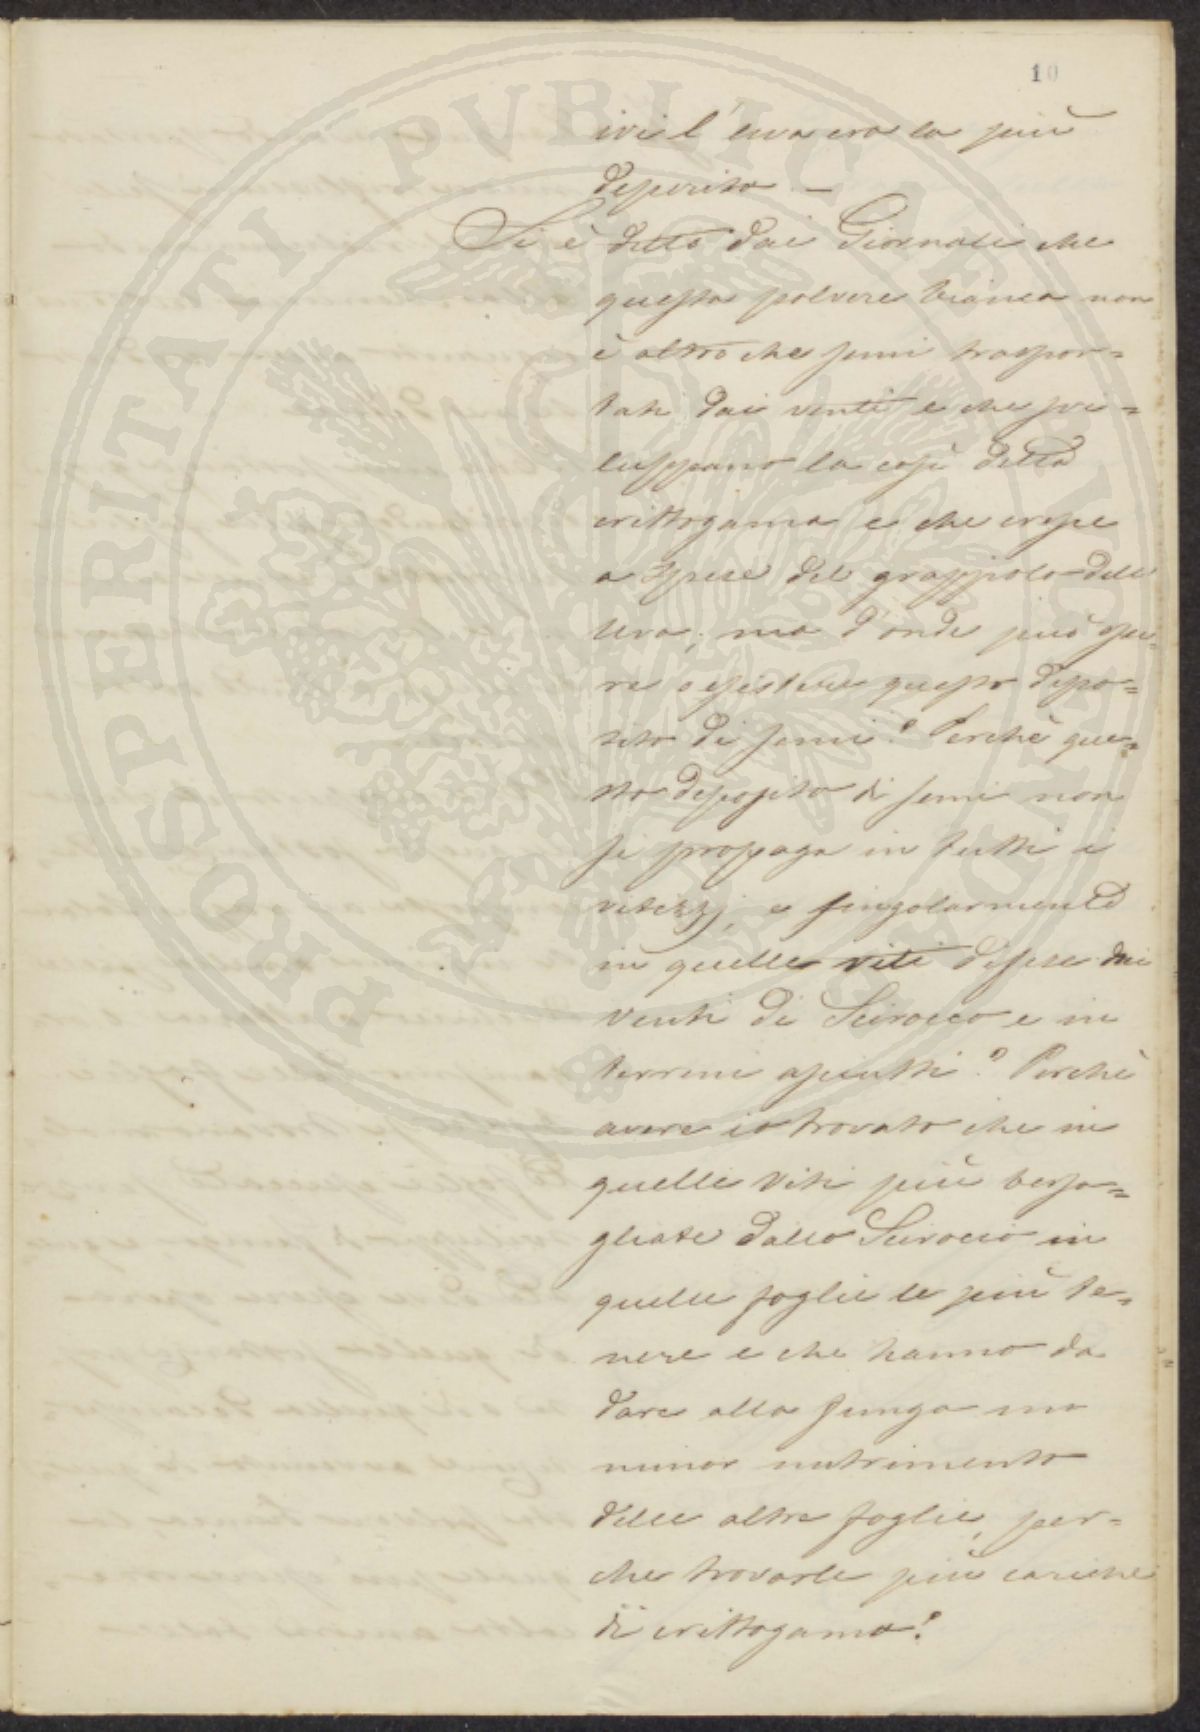 10
ivi l'uva era la più
deperita. —
Si è detto dai Giornali che
questa polvere bianca non
è altro che semi traspor=
tati dai venti e che svi=
luppano la così detta
crittogama e che cresce
a spese del grappolo dell
uva; ma d'onde può
re o esistere questo depo=
sito di semi? Perchè que=
sto deposito di semi non
si propaga in tutti i
vitizzj, e singolarmente
in quelle viti difese dai
venti di Scirocco e in
terreni asciutti? Perchè
avere io trovato che in
quelle viti più bersa=
gliate dallo Scirocco in
quelle foglie le più te=
nere e che hanno da
dare alla funga un
minor nutrimento
delle altre foglie, per=
che trovarle più cariche
di crittogama?
PROSPERITATI PVBLICAE AVGENDAE